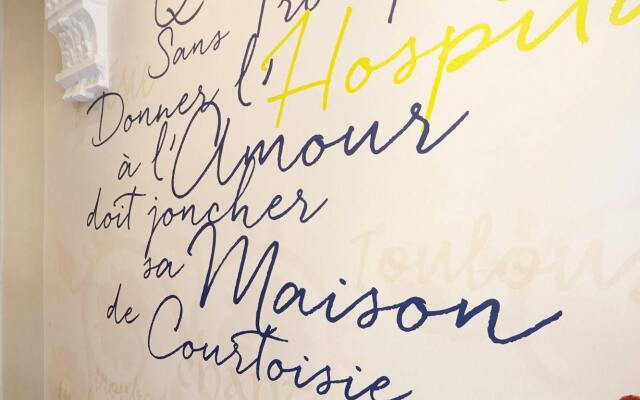 Sans
Donner l'Hospit
à l'Amour
doit joncher
sa Maison
de
Courtoisie
Toulous